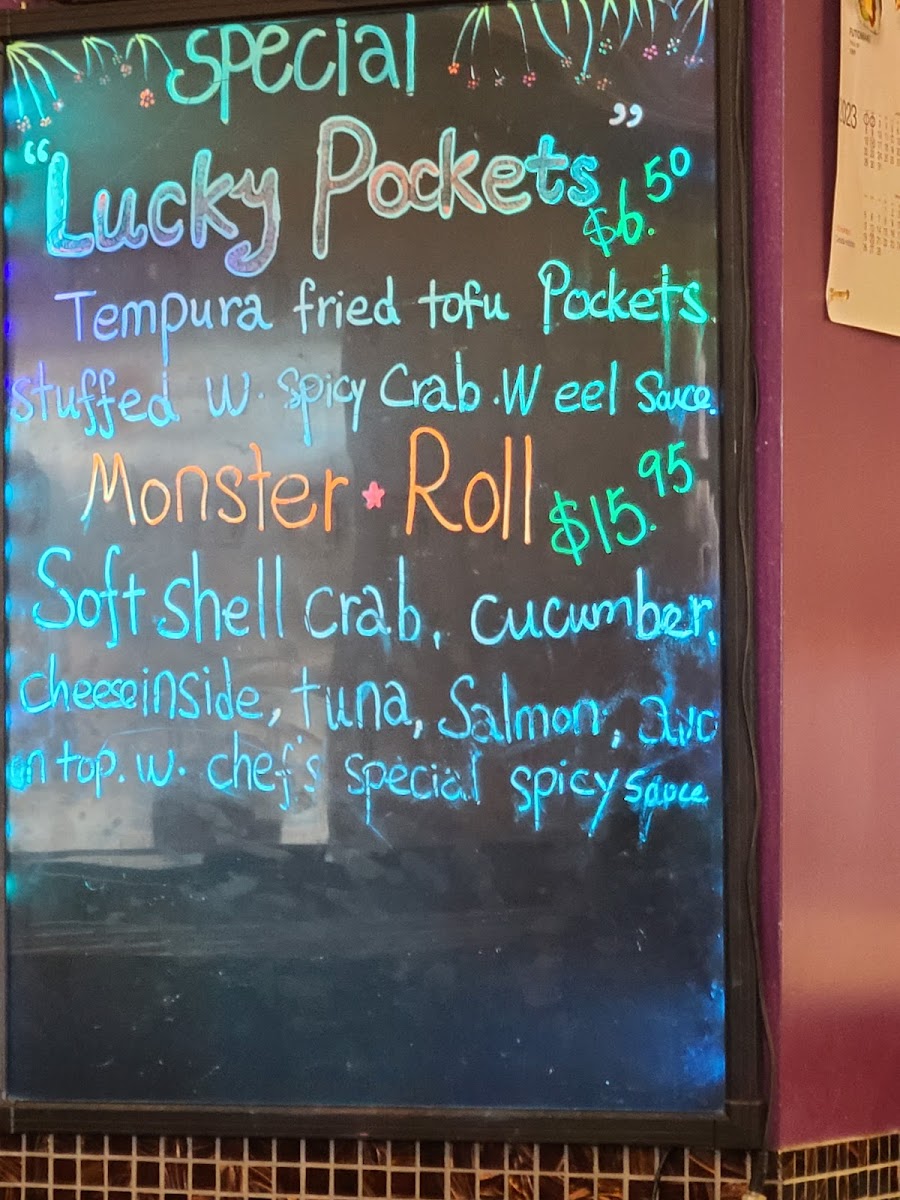 Special
"Lucky Pockets"
$6.50
Tempura fried tofu Pockets.
stuffed w. Spicy Crab.W eel Sauce.
Monster Roll
$15.95
Soft shell crab, cucumber,
cheeseinside, tuna, Salmon, avo
on top. w. chef's special spicy sauce
2023